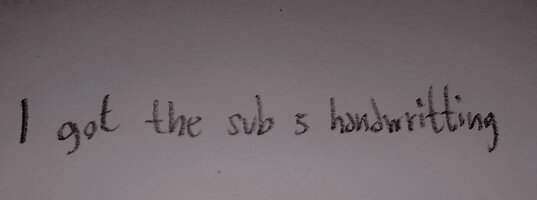 I got the sub 5 handwritting